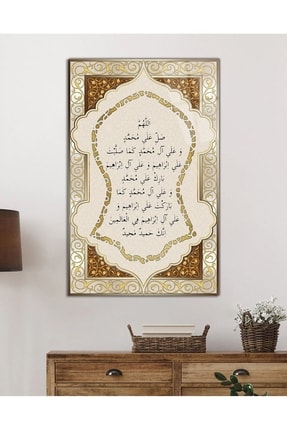 اللَّهُمَّ
صَلِّ عَلَى مُحَمَّدٍ
وَ عَلَى آلِ مُحَمَّدٍ كَمَا صَلَّيْتَ
عَلَى إِبْرَاهِيمَ وَ عَلَى آلِ إِبْرَاهِيمَ
بَارِكْ عَلَى مُحَمَّدٍ
وَ عَلَى آلِ مُحَمَّدٍ كَمَا
بَارَكْتَ عَلَى إِبْرَاهِيمَ وَ
عَلَى آلِ إِبْرَاهِيمَ فِي الْعَالَمِينَ
إِنَّكَ حَمِيدٌ مَجِيدٌ